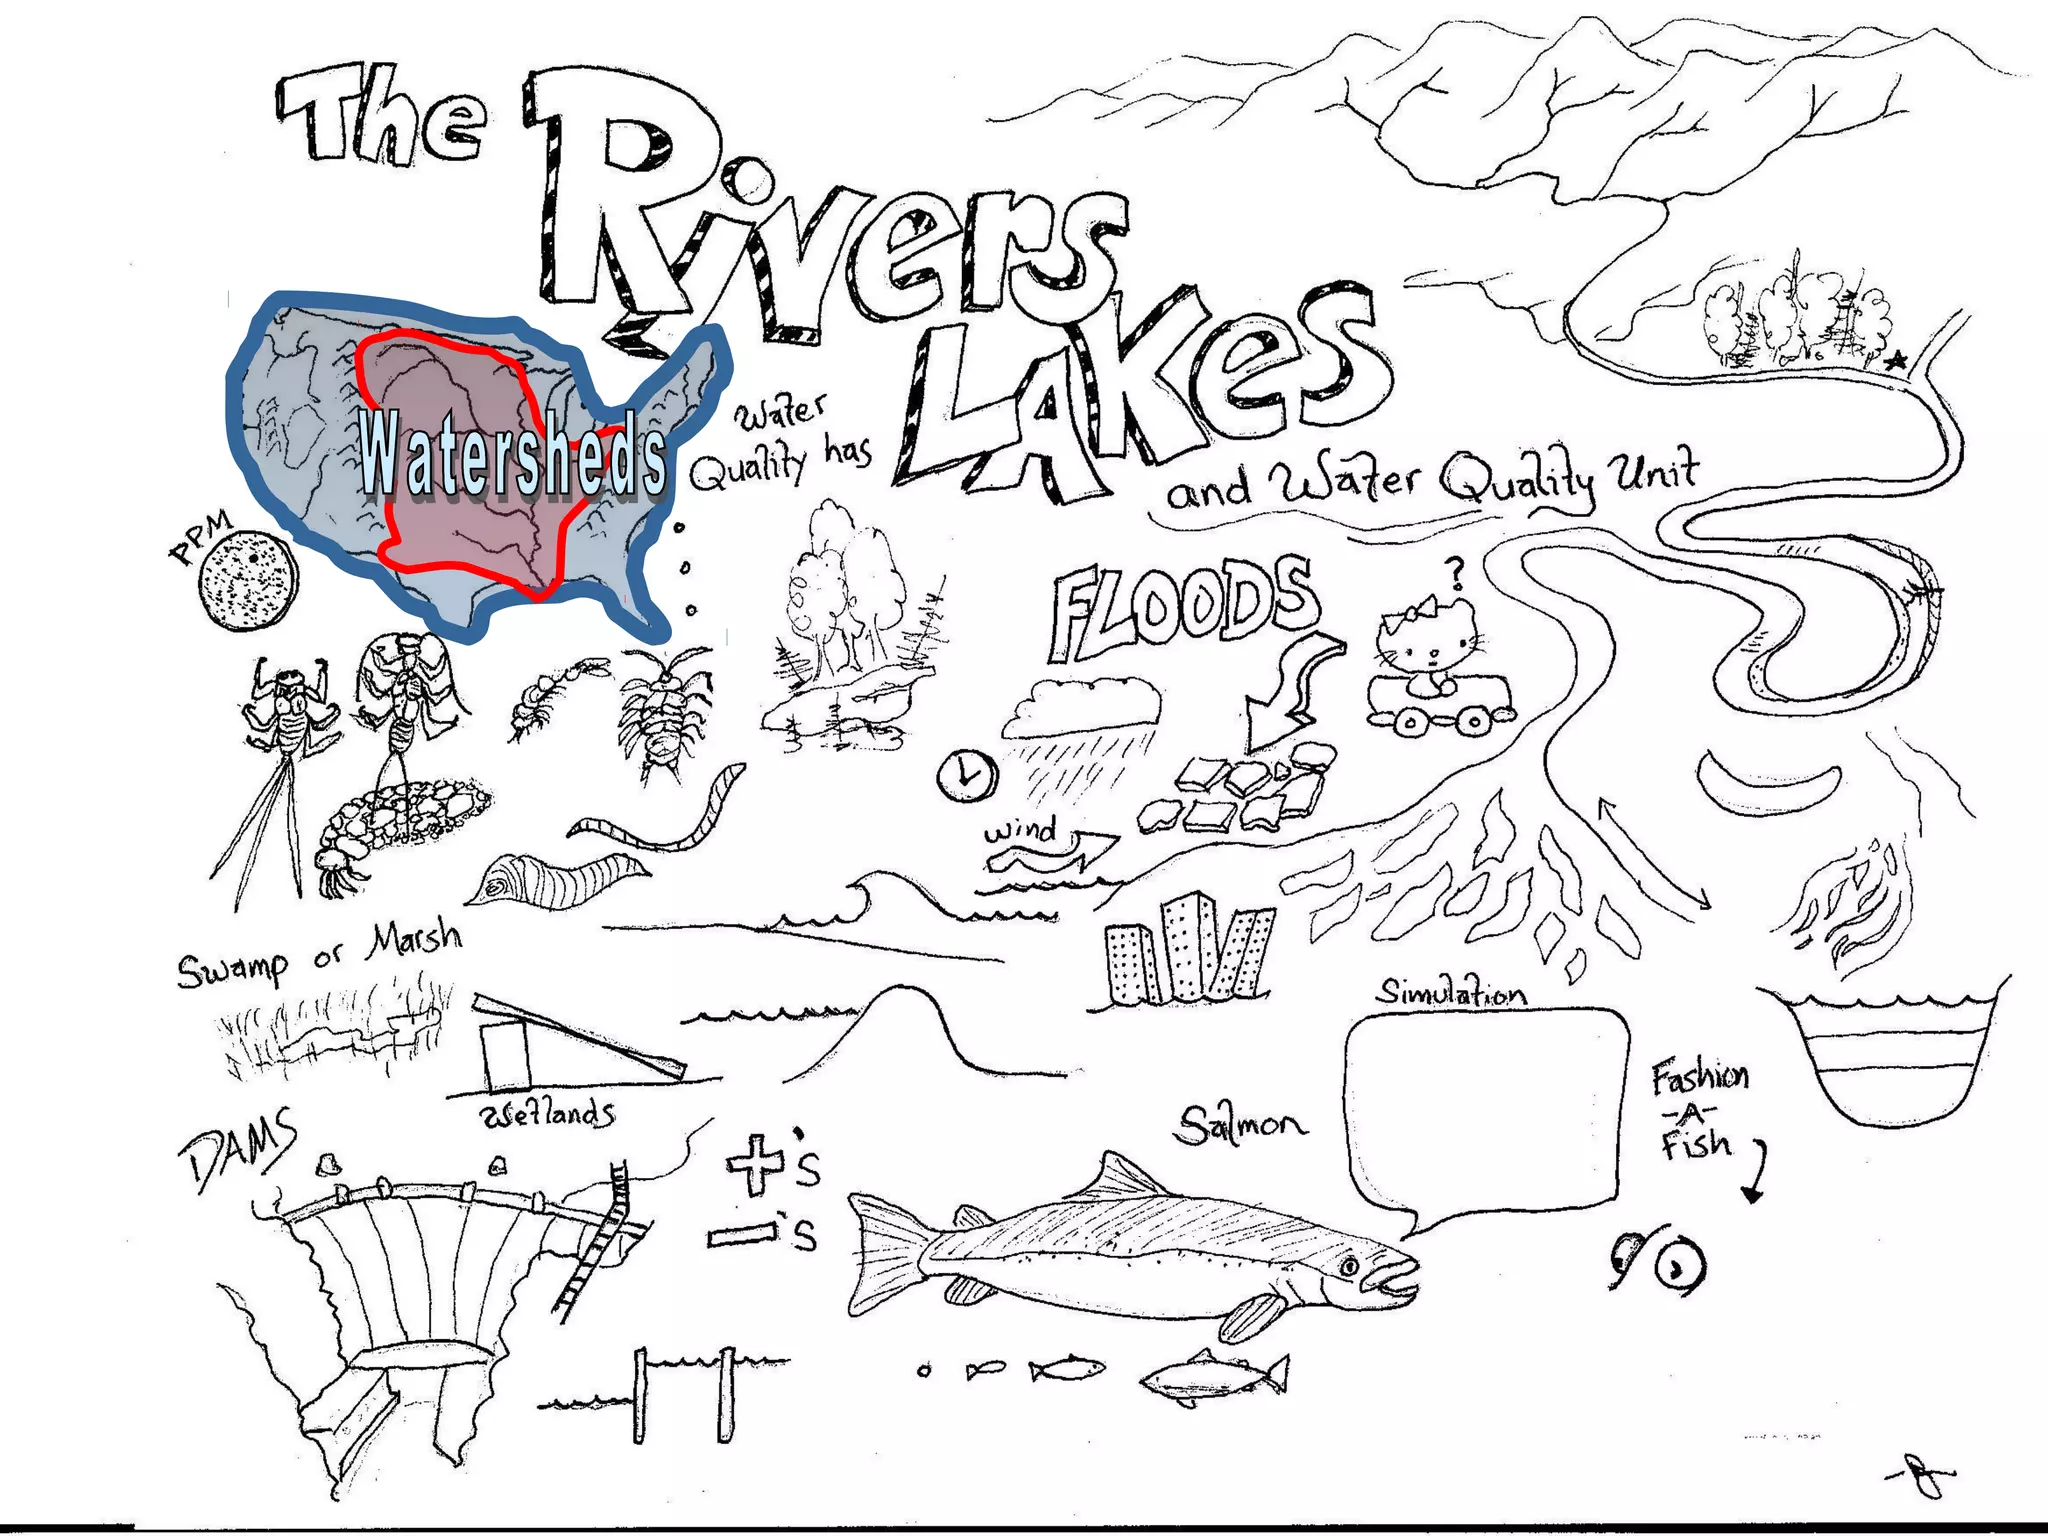 The Rivers
LAKes
and Water Quality Unit
Watersheds
Water
Quality has
PPM
FLOODS
?
wind
Swamp or Marsh
Wetlands
Simulation
Salmon
Fashion
-A-
Fish
DAMS
+'s
-'s